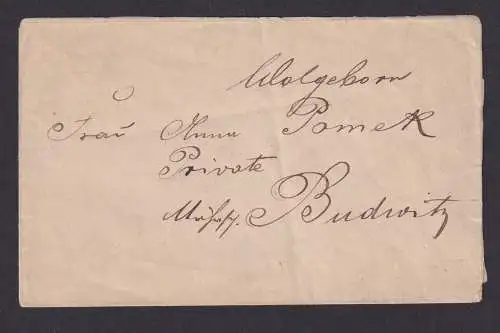 Wolgeborn
Frau Anna Pomek
Private
Mähr. Budwitz